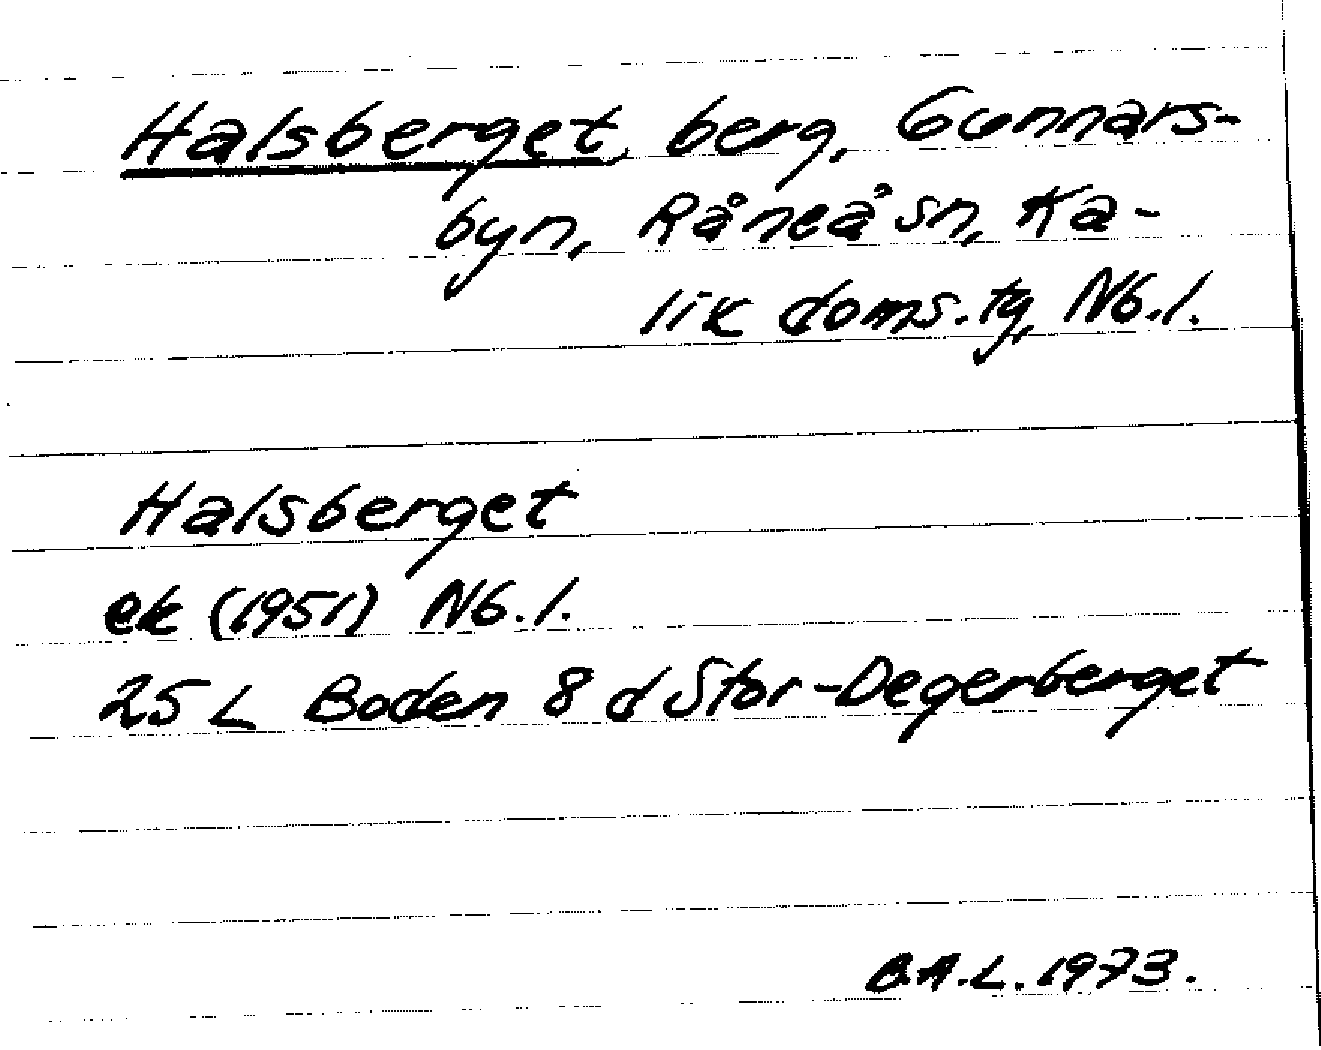 Halsberget, berg, Gunnars-
byn, Råneå sn, Ka-
lix doms.tg, Nb.l.
Halsberget
ek (1951) Nb.l.
25 L Boden 8 d Stor-Degerberget
B.A.L. 1973.